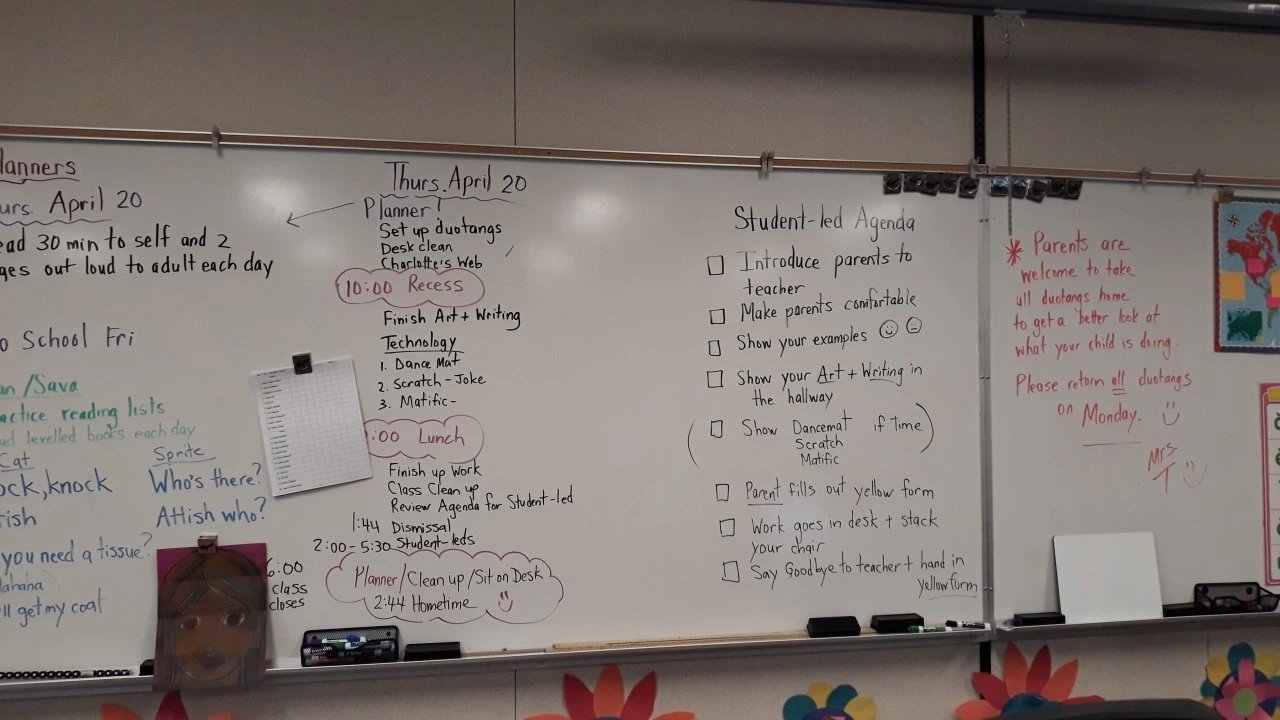 lanners
urs. April 20
ead 30 min to self and 2
ges out loud to adult each day
o School Fri
an /Sava
actice reading lists
ad levelled books each day
Cat
Sprite
ock, knock
Who's there?
rish
Attish who?
you need a tissue?
ahaha
ll get my coat
6:00
class
closes
Thurs. April 20
Planner!
Set up duotangs
Desk clean
Charlotte's Web
10:00 Recess
Finish Art + Writing
Technology
1. Dance Mat
2. Scratch - Joke
3. Matific -
:00 Lunch
Finish up Work
Class Clean up
Review Agenda for Student-led
1:44 Dismissal
2:00 - 5:30 Student-leds
Planner/Clean up/Sit on Desk
2:44 Hometime
Student-led Agenda
Introduce parents to
teacher
Make parents comfortable
Show your examples
Show your Art + Writing in
the hallway
( Show Dancemat if Time )
Scratch
Matific
Parent fills out yellow form
Work goes in desk + stack
your chair
Say Goodbye to teacher + hand in
yellow form
* Parents are
welcome to take
all duotangs home
to get a better look at
what your child is doing.
Please return all duotangs
on Monday.
Mrs.
T